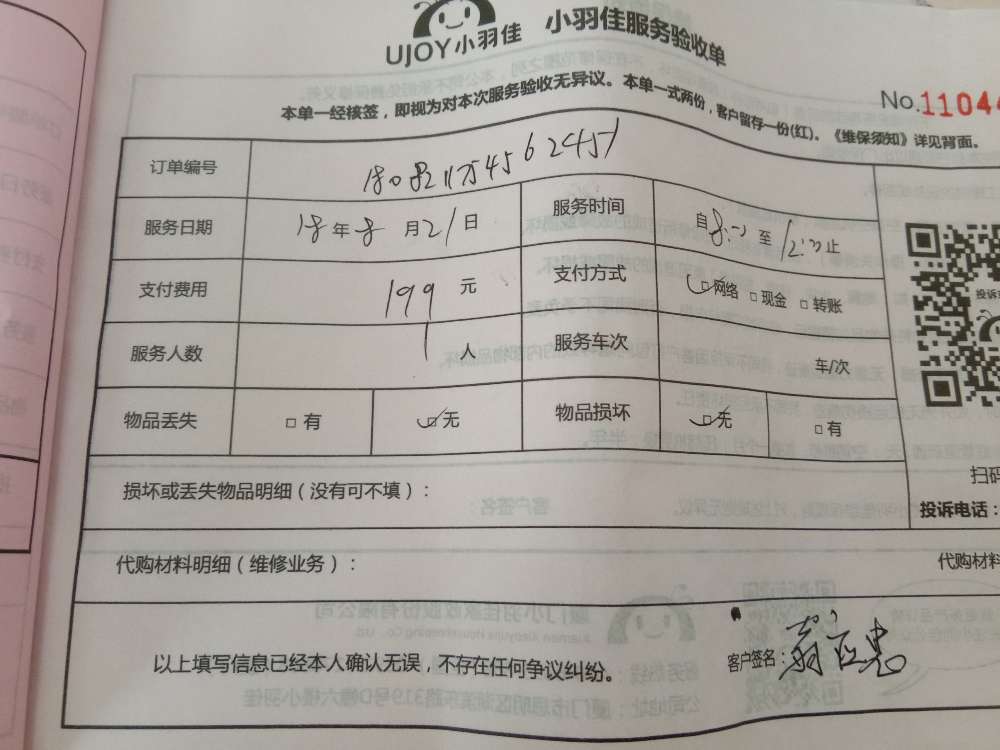 UJOY小羽佳 小羽佳服务验收单
本单一经核签，即视为对本次服务验收无异议。本单一式两份，客户留存一份(红)。《维保须知》详见背面。
No.11044
订单编号
服务日期 18年8月21日 服务时间 自8:00至12:00止
支付费用 199元 支付方式 网络 现金 转账
服务人数 1人 服务车次 车/次
物品丢失 有 无 物品损坏 无 有
损坏或丢失物品明细（没有可不填）：
扫码
投诉电话：
代购材料明细（维修业务）： 代购材料
以上填写信息已经本人确认无误，不存在任何争议纠纷。 客户签名：